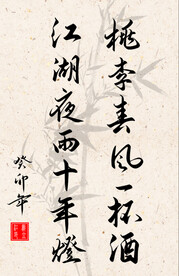 桃李春風一杯酒
江湖夜雨十年燈
癸卯年